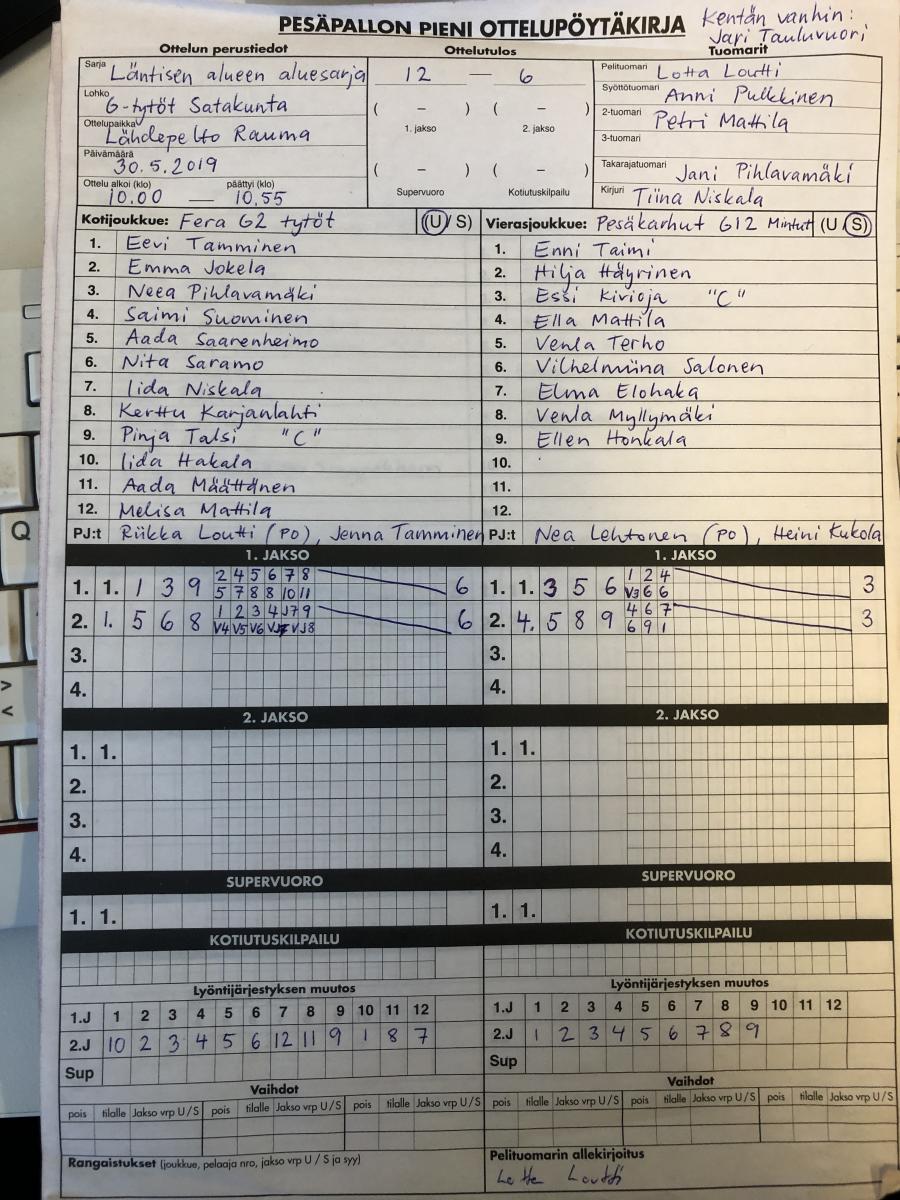 PESÄPALLON PIENI OTTELUPÖYTÄKIRJA
Kentän vanhin:
Jari Tauluvuori
Ottelun perustiedot Ottelutulos Tuomarit
Sarja Läntisen alueen aluesarja
Lohko G-tytöt Satakunta
Ottelupaikka Lähdepelto Rauma
Päivämäärä 30.5.2019
Ottelu alkoi (klo) päättyi (klo)
10.00 — 10.55
12 — 6
( – ) ( – )
1. jakso 2. jakso
( – ) ( – )
Supervuoro Kotiutuskilpailu
Pelituomari Lotta Loutti
Syöttötuomari Anni Pulkkinen
2-tuomari Petri Mattila
3-tuomari
Takarajatuomari Jani Pihlavamäki
Kirjuri Tiina Niskala
Kotijoukkue: Fera G2 tytöt (U/ S)
1. Eevi Tamminen
2. Emma Jokela
3. Neea Pihlavamäki
4. Saimi Suominen
5. Aada Saarenheimo
6. Nita Saramo
7. Iida Niskala
8. Kerttu Karjanlahti
9. Pinja Talsi "C"
10. Iida Hakala
11. Aada Määttänen
12. Melisa Mattila
PJ:t Riikka Loutti (PO), Jenna Tamminen
Vierasjoukkue: Pesäkarhut G12 Mintut (U /S)
1. Enni Taimi
2. Hilja Häyrinen
3. Essi Kivioja "C"
4. Ella Mattila
5. Venla Terho
6. Vilhelmiina Salonen
7. Elma Elohaka
8. Venla Myllymäki
9. Ellen Honkala
10.
11.
12.
PJ:t Nea Lehtonen (PO), Heini Kukola
1. JAKSO
2 4 5 6 7 8
1. 1. 1 3 9 6
5 7 8 8 10 11
1 2 3 4 J7 9
2. 1. 5 6 8 6
V4 V5 V6 VJ8
3.
4.
1. JAKSO
1 2 4
1. 1. 3 5 6 3
V3 6 6
4 6 7
2. 4. 5 8 9 3
6 9 1
3.
4.
2. JAKSO
1. 1.
2.
3.
4.
2. JAKSO
1. 1.
2.
3.
4.
SUPERVUORO
1. 1.
SUPERVUORO
1. 1.
KOTIUTUSKILPAILU
KOTIUTUSKILPAILU
Lyöntijärjestyksen muutos
1.J 1 2 3 4 5 6 7 8 9 10 11 12
2.J 10 2 3 4 5 6 12 11 9 1 8 7
Sup
Lyöntijärjestyksen muutos
1.J 1 2 3 4 5 6 7 8 9 10 11 12
2.J 1 2 3 4 5 6 7 8 9
Sup
Vaihdot
pois tilalle Jakso vrp U / S pois tilalle Jakso vrp U / S pois tilalle Jakso vrp U / S
Vaihdot
pois tilalle Jakso vrp U / S pois tilalle Jakso vrp U / S pois tilalle Jakso vrp U / S
Rangaistukset (joukkue, pelaaja nro, jakso vrp U / S ja syy)
Pelituomarin allekirjoitus
Lotta Loutti
Q
>
<